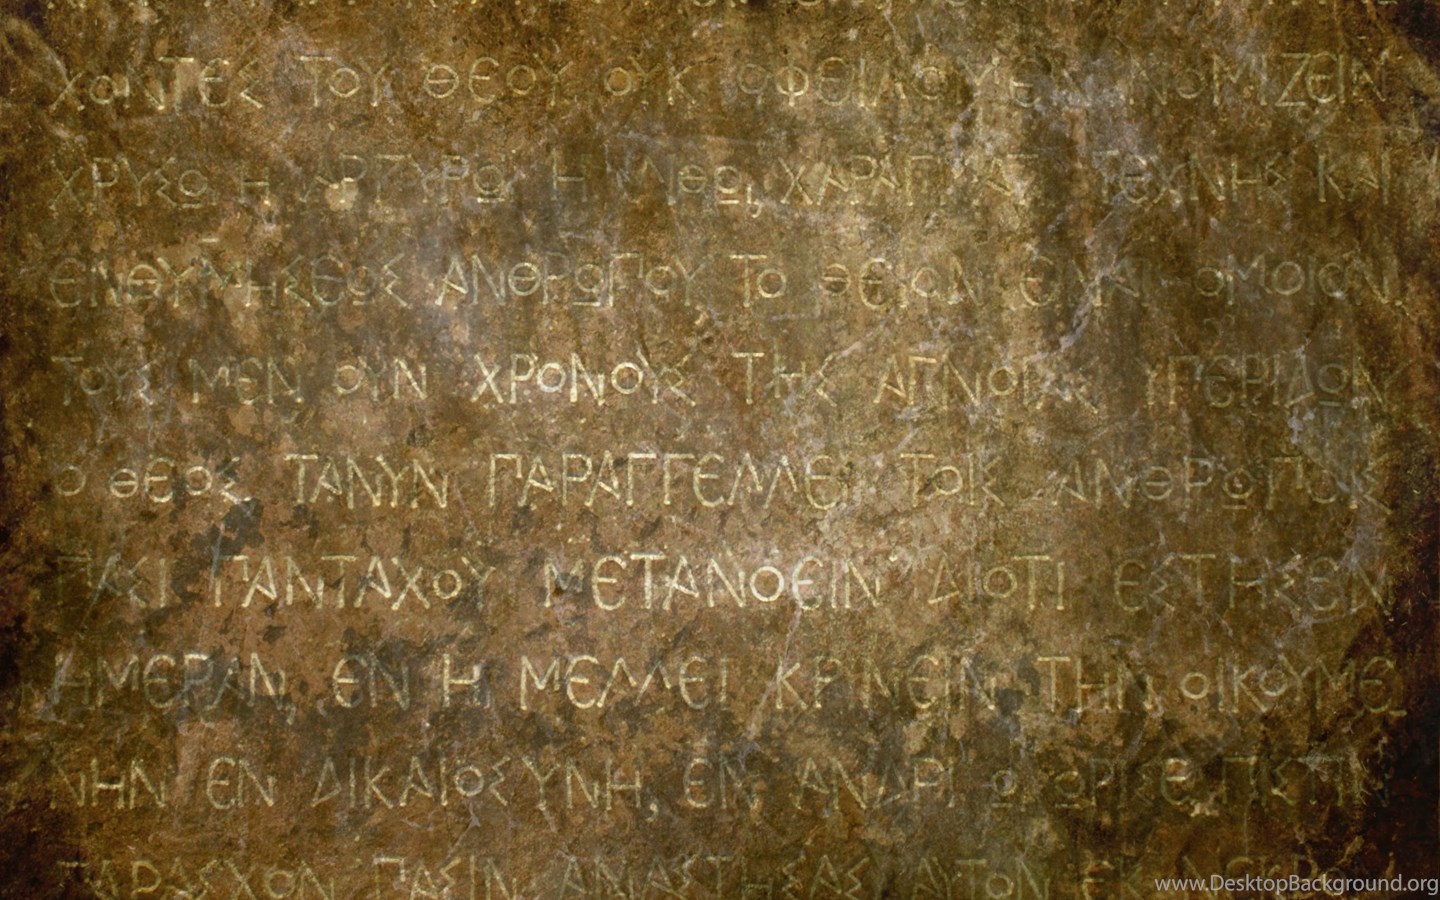 ΧΟΝΤΕΣ ΤΟΥ ΘΕΟΥ ΟΥΚ ΟΦΕΙΛΟΜΕΝ ΝΟΜΙΖΕΙΝ
ΧΡΥΣΩ Η ΑΡΓΥΡΩ Η ΛΙΘΩ, ΧΑΡΑΓΜΑΤΙ ΤΕΧΝΗΣ ΚΑΙ
ΕΝΘΥΜΗΣΕΩΣ ΑΝΘΡΩΠΟΥ ΤΟ ΘΕΙΟΝ ΕΙΝΑΙ ΟΜΟΙΟΝ.
ΤΟΥΣ ΜΕΝ ΟΥΝ ΧΡΟΝΟΥΣ ΤΗΣ ΑΓΝΟΙΑΣ ΥΠΕΡΙΔΩΝ
Ο ΘΕΟΣ ΤΑΝΥΝ ΠΑΡΑΓΓΕΛΛΕΙ ΤΟΙΣ ΑΝΘΡΩΠΟΙΣ
ΠΑΣΙ ΠΑΝΤΑΧΟΥ ΜΕΤΑΝΟΕΙΝ ΔΙΟΤΙ ΕΣΤΗΣΕΝ
ΗΜΕΡΑΝ, ΕΝ Η ΜΕΛΛΕΙ ΚΡΙΝΕΙΝ ΤΗΝ ΟΙΚΟΥΜΕ
ΝΗΝ ΕΝ ΔΙΚΑΙΟΣΥΝΗ, ΕΝ ΑΝΔΡΙ Ω ΩΡΙΣΕ ΠΙΣΤΙΝ
ΠΑΡΑΣΧΩΝ ΠΑΣΙΝ ΑΝΑΣΤΗΣΑΣ ΑΥΤΟΝ ΕΚ ΝΕΚΡΩΝ
www.DesktopBackground.org